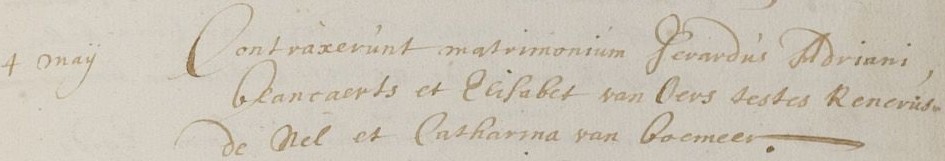 4 maÿ Contraxerunt matrimonium Gerardus Adriani,
blancaerts et Elisabet van Oers testes Renerus
de Nel et Catharina van boemeer.